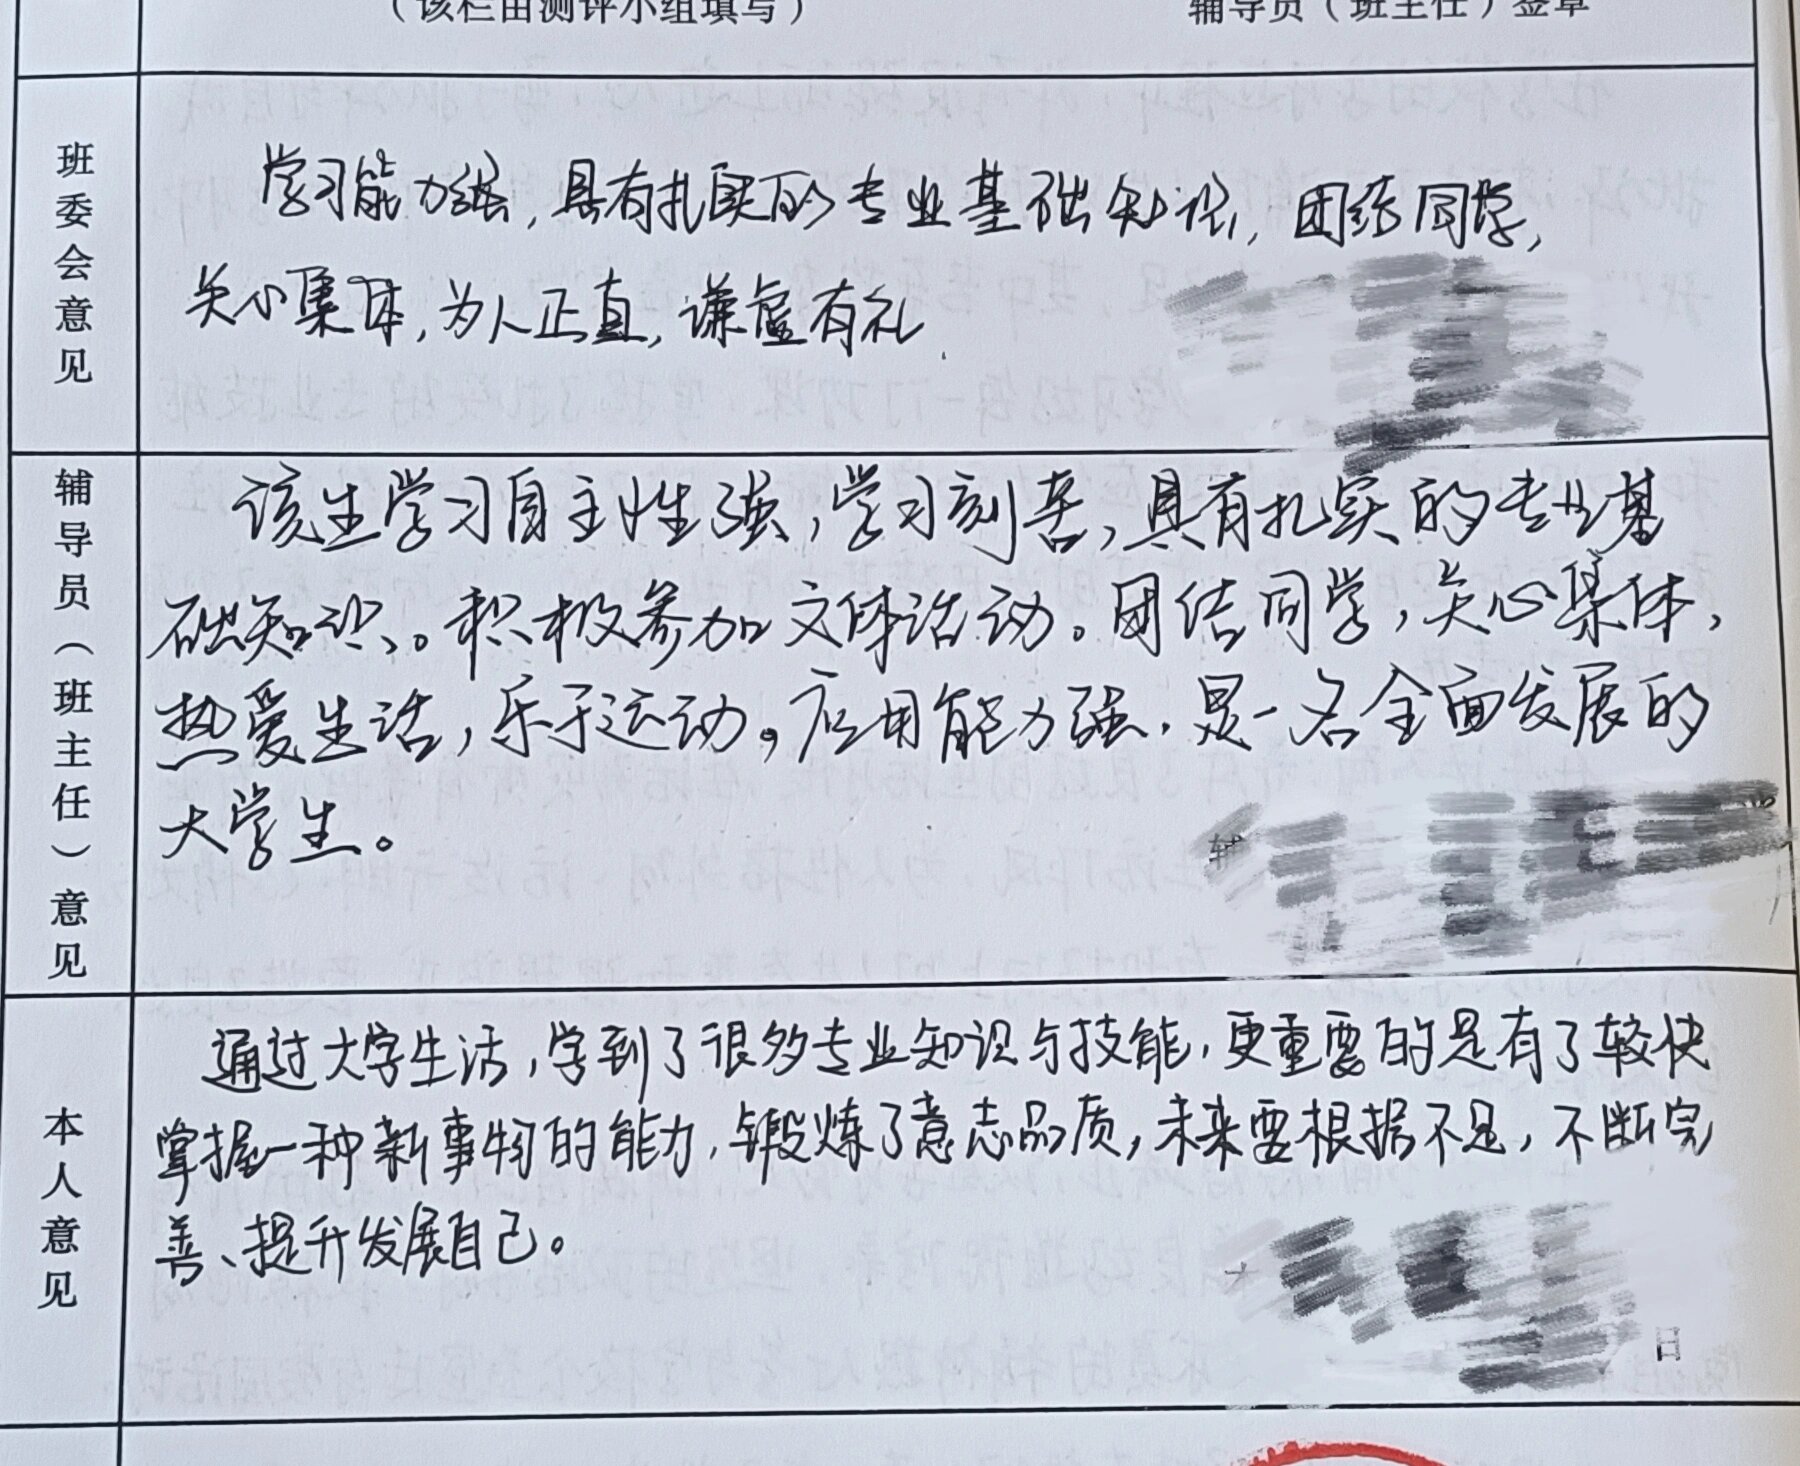 （该栏由测评小组填写）	辅导员（班主任）签章
班委会意见
学习能力强，具有扎实的专业基础知识，团结同学，
关心集体，为人正直，谦虚有礼.
辅导员（班主任）意见
该生学习自主性强，学习刻苦，具有扎实的专业基
础知识。积极参加文体活动。团结同学，关心集体，
热爱生活，乐于运动。应用能力强，是一名全面发展的
大学生。
辅
本人意见
通过大学生活，学到了很多专业知识与技能，更重要的是有了较快
掌握一种新事物的能力，锻炼了意志品质，未来要根据不足，不断完
善、提升发展自己。
日